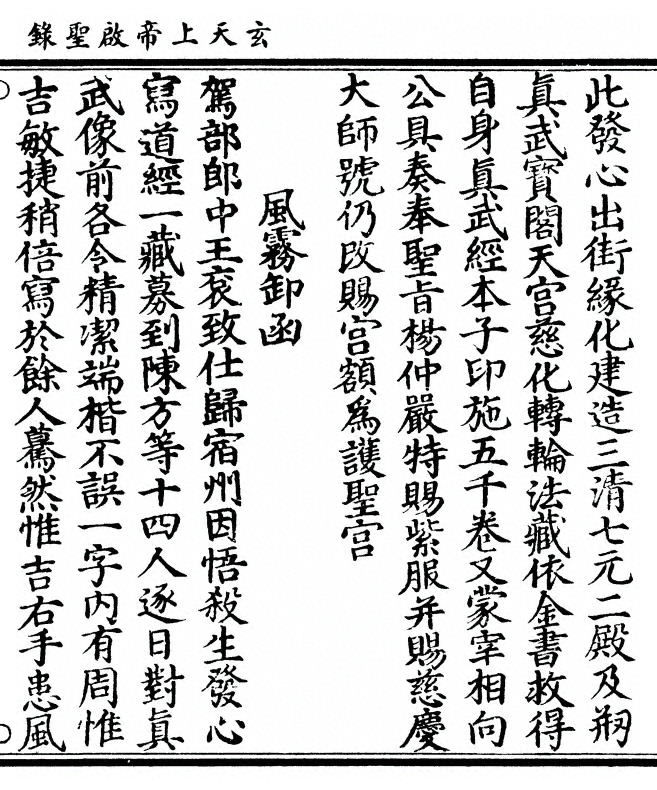 玄天上帝啟聖錄
此發心出街緣化建造三清七元二殿及剏
眞武寶閣天宫慈化轉輪法藏依金書救得
自身眞武經本子印施五千卷又蒙宰相向
公具奏奉聖旨楊仲嚴特賜紫服并賜慈慶
大師號仍改賜宫額爲護聖宫
風霧卸函
駕部郎中王衮致仕歸宿州因悟殺生發心
寫道經一藏募到陳方等十四人逐日對眞
武像前各令精潔端楷不誤一字内有周惟
吉敏捷稍倍寫於餘人驀然惟吉右手患風